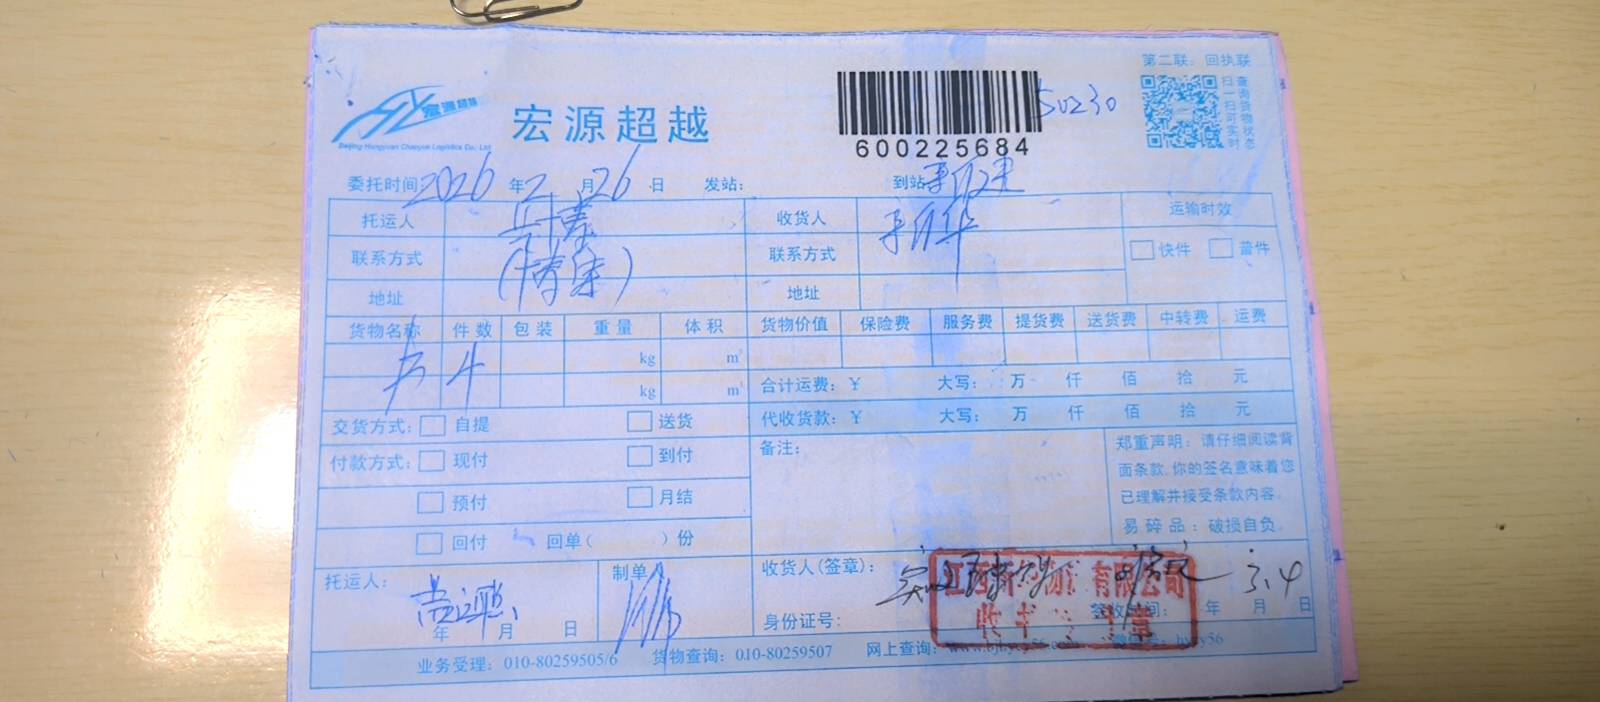 第二联：回执联
宏源超越
Beijing Hongyuan Chaoyue Logistics Co., Ltd
宏源超越
600225684
50230
扫一扫可实时
查询货物状态
委托时间 2026 年 2 月 26 日 发站： 到站
托运人 收货人 运输时效
联系方式 联系方式 快件 普件
地址 地址
货物名称 件数 包装 重量 体积 货物价值 保险费 服务费 提货费 送货费 中转费 运费
书 4 kg m³
kg m³
合计运费：¥ 大写： 万 仟 佰 拾 元
代收货款：¥ 大写： 万 仟 佰 拾 元
交货方式： 自提 送货
付款方式： 现付 到付
预付 月结
回付 回单（ ）份
备注：
郑重声明：请仔细阅读背
面条款，你的签名意味着您
已理解并接受条款内容。
易碎品：破损自负。
托运人：
年 月 日
制单
收货人(签章)：
3.4
身份证号： 年 月 日
江西 有限公司
收 章
业务受理：010-80259505/6 货物查询：010-80259507 网上查询：